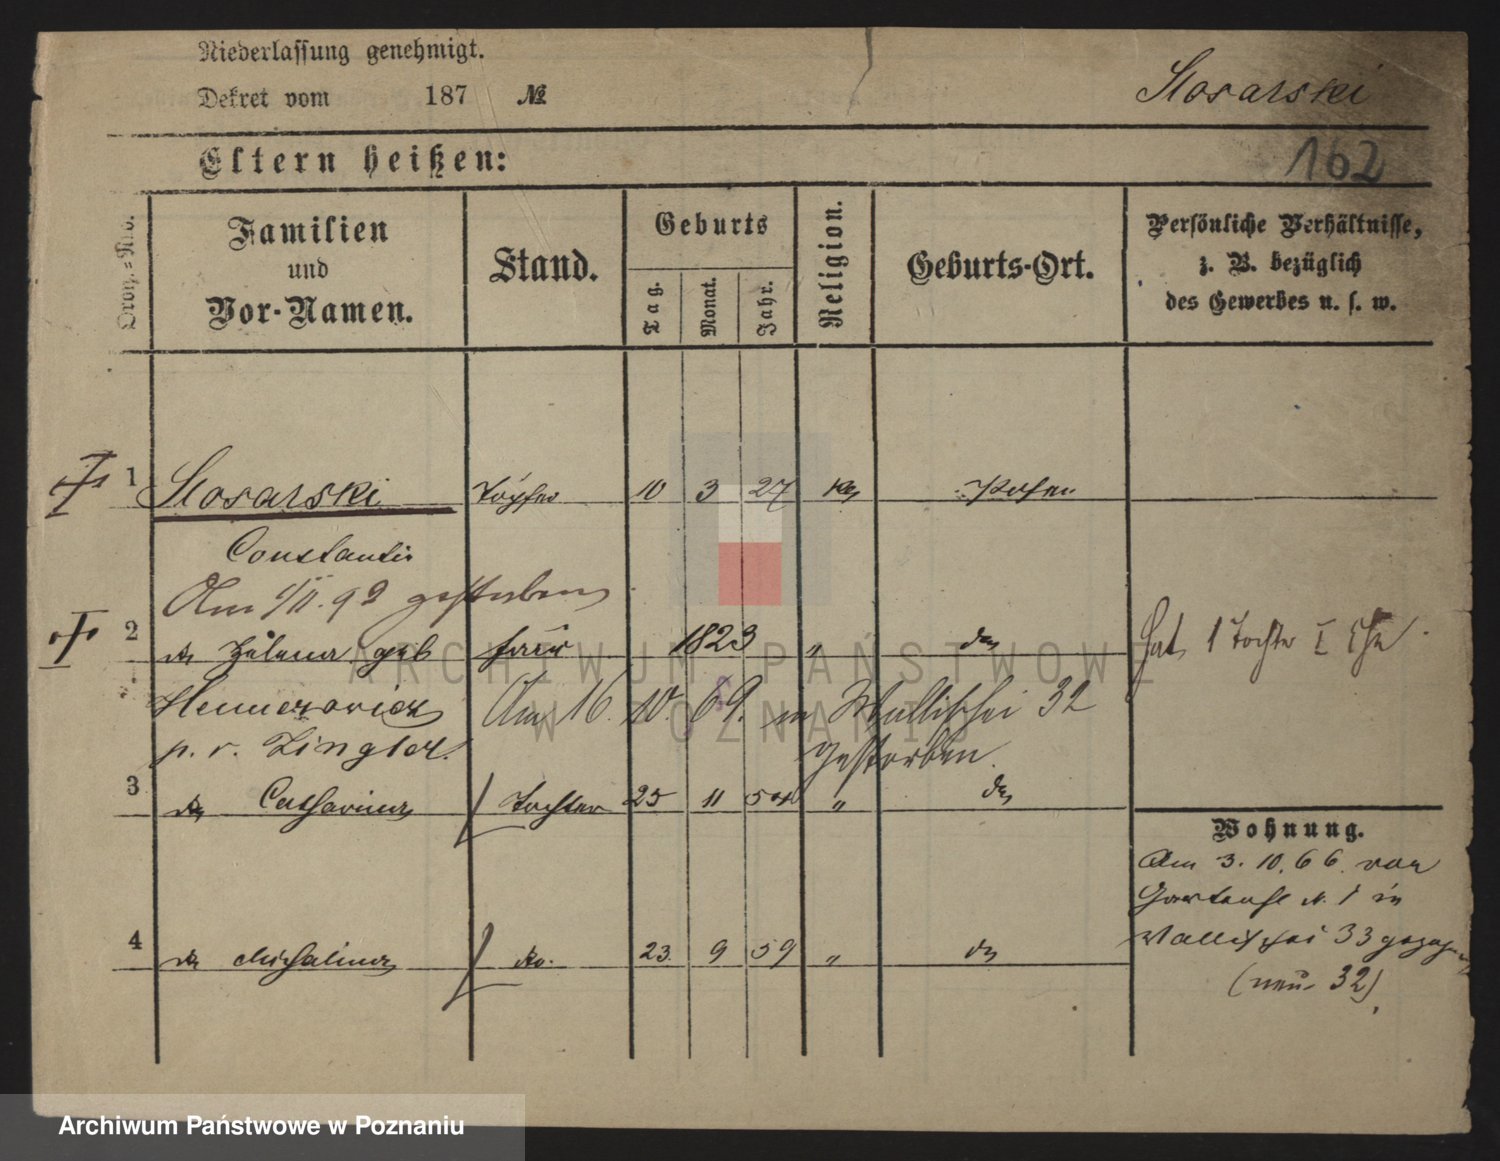 Niederlassung genehmigt.
Dekret vom 187 №
Slosarski
162
Eltern heißen:
Ordn.=Nro.
Familien und Vor-Namen.
Stand.
Geburts
Tag.
Monat.
Jahr.
Religion.
Geburts-Ort.
Persönliche Verhältnisse, z. B. bezüglich des Gewerbes u. s. w.
1 Slosarski Töpfer 10 3 27 Posen
Constantin
Am 92 gestorben
2 geb Frau 1823 " do
Hat 1 Tochter I Ehe
Am 16. 10. 69. in Wallischei 32
p. v. Zingler
gestorben.
3 do Catharina Tochter 25 11 54 " do
Wohnung.
Am 3. 10. 66. von
Gartenstr N. 1 in
4 do Michalina do. 23. 9 59 " do
Wallischei 33 gezogen
(neu 32)
ARCHIWUM PAŃSTWOWE
W POZNANIU
Archiwum Państwowe w Poznaniu